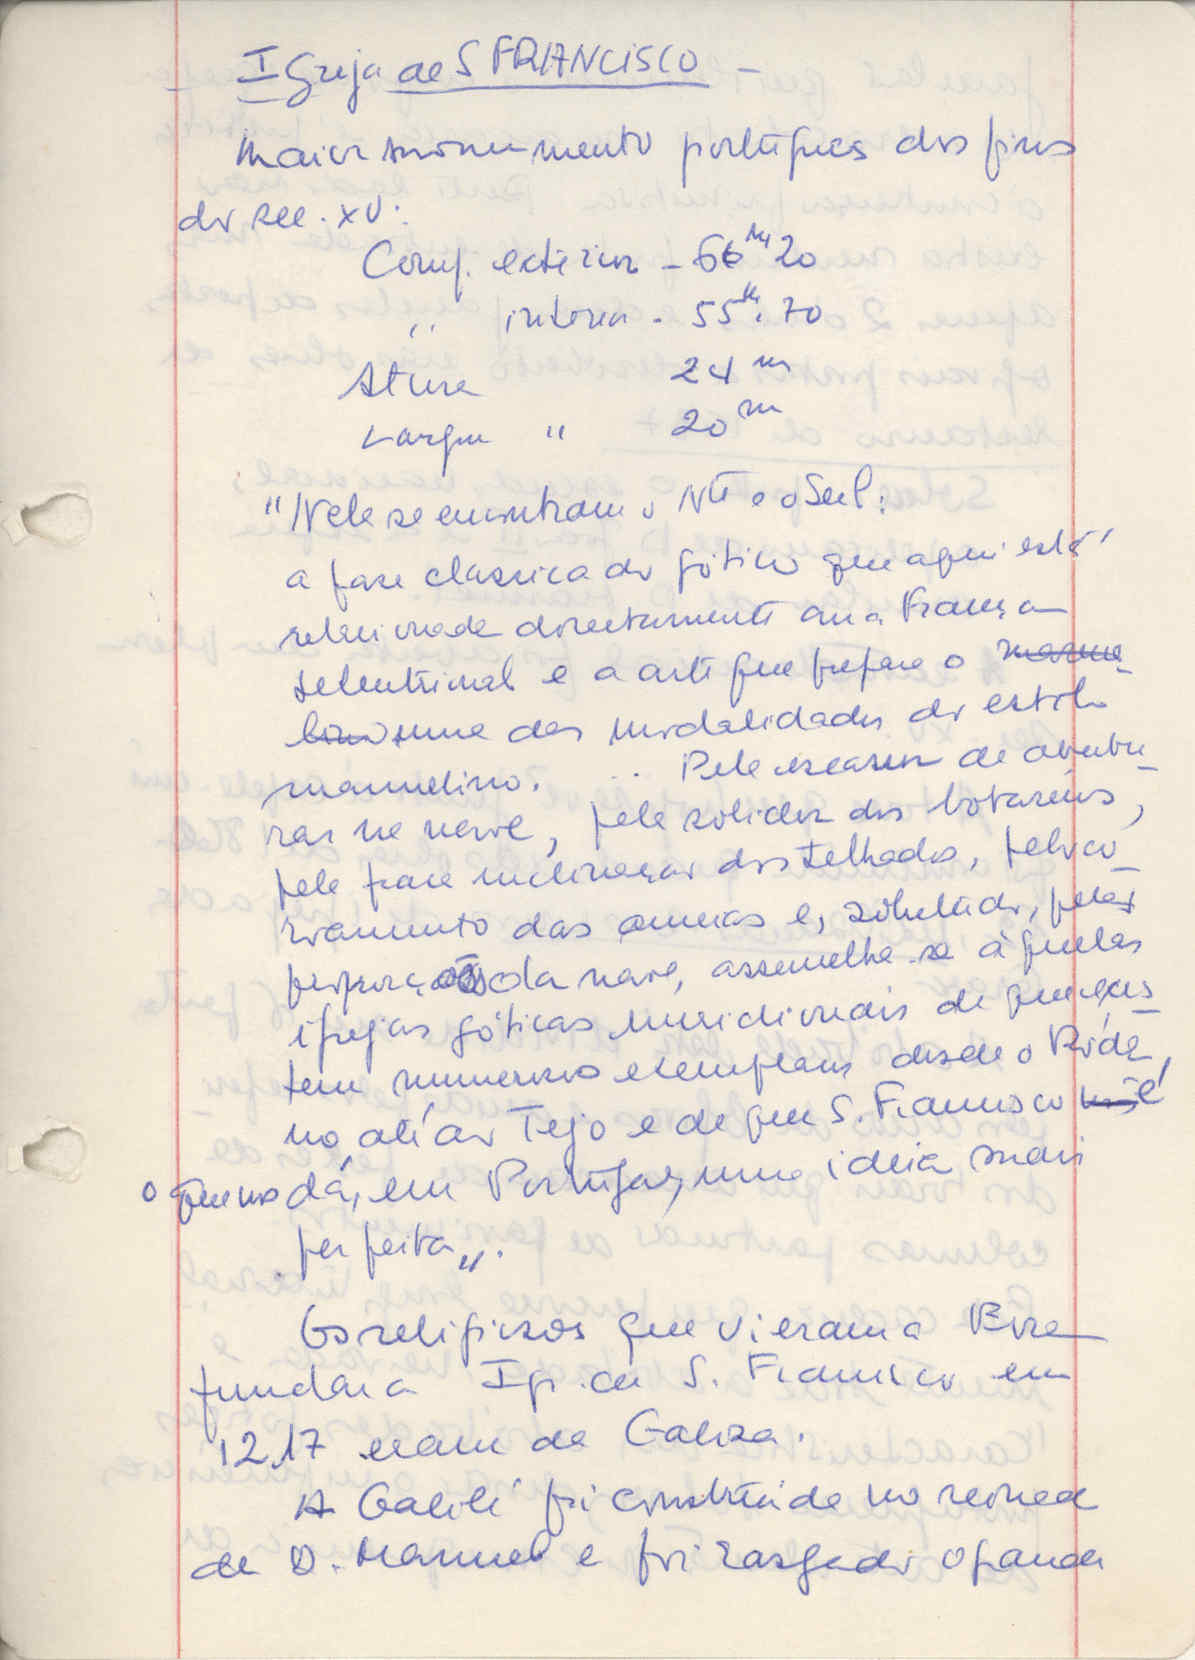 Igreja de S FRANCISCO -
Maior monumento português dos fins
do sec. XV:
Comp. exterior - 66m 20
" interior - 55m. 70
Altura 24 m
Largu " 20 m
"Nele se encontram o Nte e o Sul:
a fase classica do gótico que aqui está
relacionada directamente com a França
setentrional e a arte que prepara o
uma das modalidades do estilo
manuelino. .. Pela escassez de abertu-
ras na nave, pela solidez dos botaréus,
pela fraca inclinação dos telhados, pelo co-
roamento das ameias e, sobretudo, pelas
proporções da nave, assemelha-se àquelas
igrejas góticas meridionais de que exis-
tem numerosos exemplares desde o Róda-
no até ao Tejo e de que S. Francisco é
o que nos dá, em Portugal, uma ideia mais
perfeita".
Os religiosos que vieram a Evora
fundar a Igr. de S. Francisco em
1217 eram da Galiza.
A Galilé foi construída no reinado
de D. Manuel e foi rasgado o grande